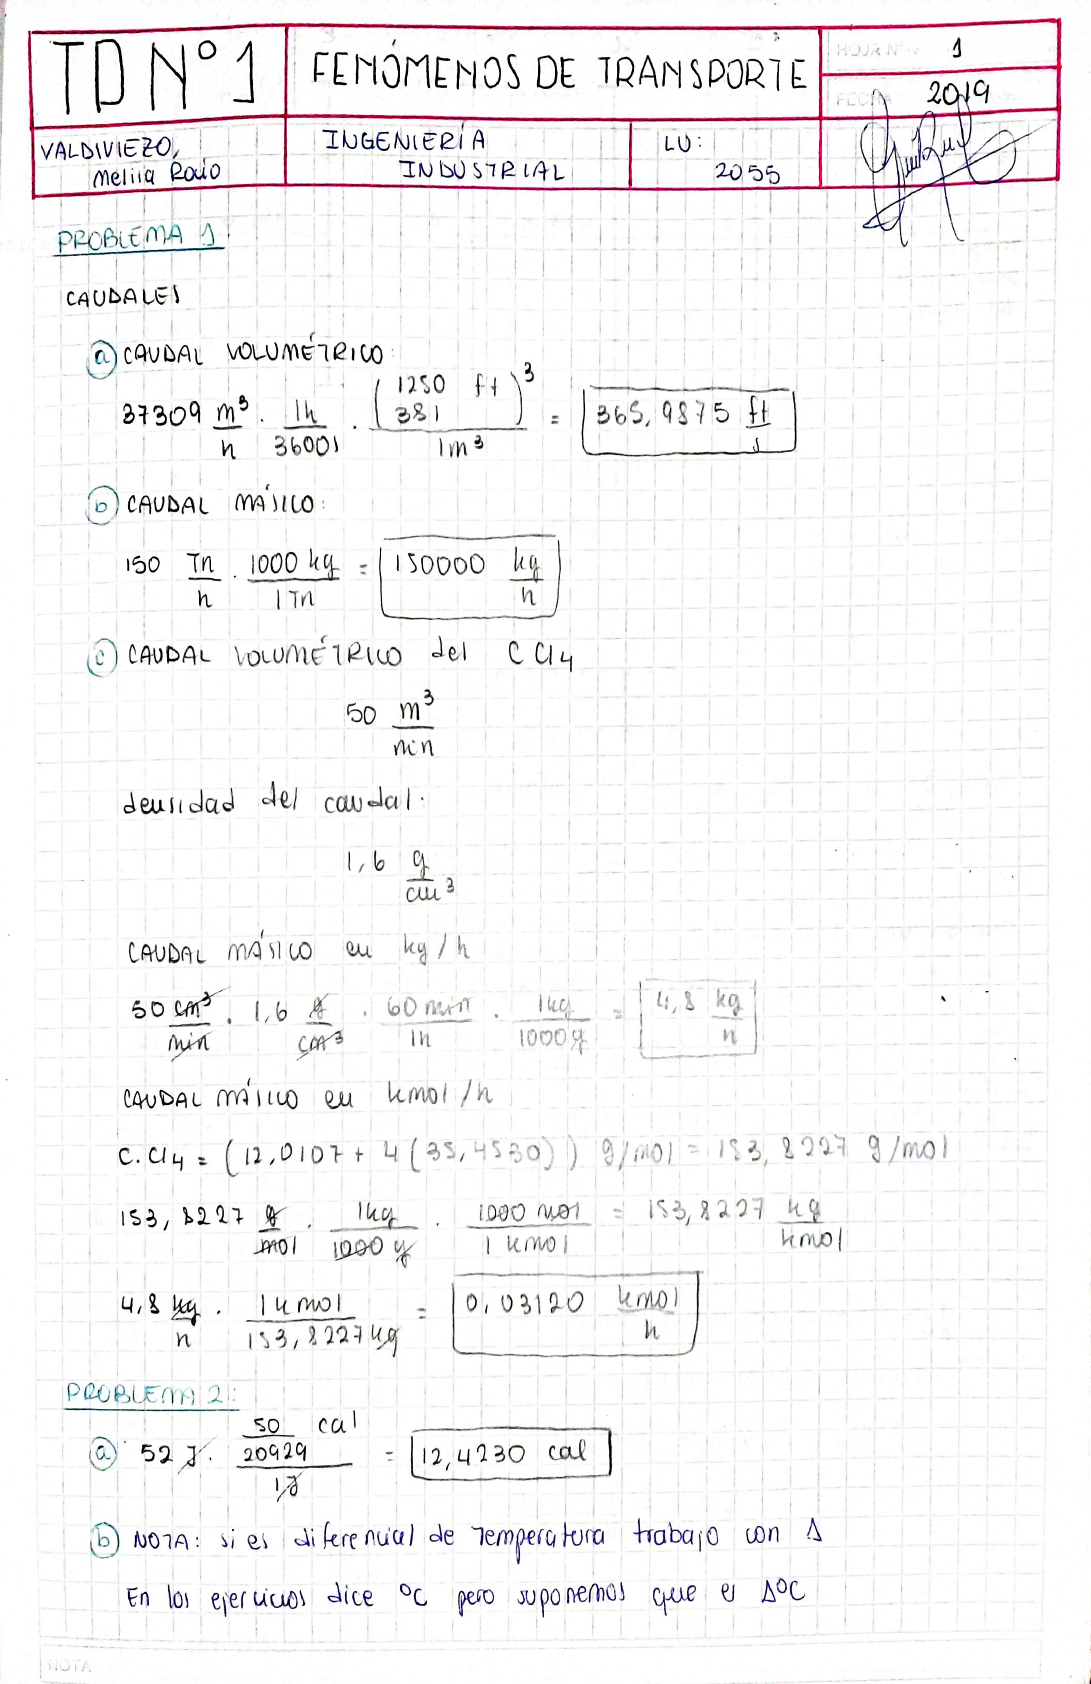 TP Nº 1
FENÓMENOS DE TRANSPORTE
HOJA Nº 1
FECHA 2019
VALDIVIEZO,
Melisa Rocío
INGENIERÍA
INDUSTRIAL
LU:
2055
PROBLEMA 1:
CAUDALES
a) CAUDAL VOLUMÉTRICO:
37309 m³/h . 1h/3600s . (1250/381 ft)³/1m³ = 365,9875 ft/s
b) CAUDAL MÁSICO:
150 Tn/h . 1000 kg/1 Tn = 150000 kg/h
c) CAUDAL VOLUMÉTRICO del CCl4
50 m³/min
densidad del caudal:
1,6 g/cm³
CAUDAL MÁSICO en kg/h
50 cm³/min . 1,6 g/cm³ . 60 min/1h . 1kg/1000g = 4,8 kg/h
CAUDAL MÁSICO en kmol/h
C.Cl4 = (12,0107 + 4(35,4530)) g/mol = 153,8227 g/mol
153,8227 g/mol . 1kg/1000 g . 1000 mol/1 kmol = 153,8227 kg/kmol
4,8 kg/h . 1 kmol/153,8227 kg = 0,03120 kmol/h
PROBLEMA 2:
a) 52 J . 50/20929 cal/1J = 12,4230 cal
b) NOTA: si es diferencial de temperatura trabajo con Δ
En los ejercicios dice ºC pero suponemos que es ΔºC
NOTA